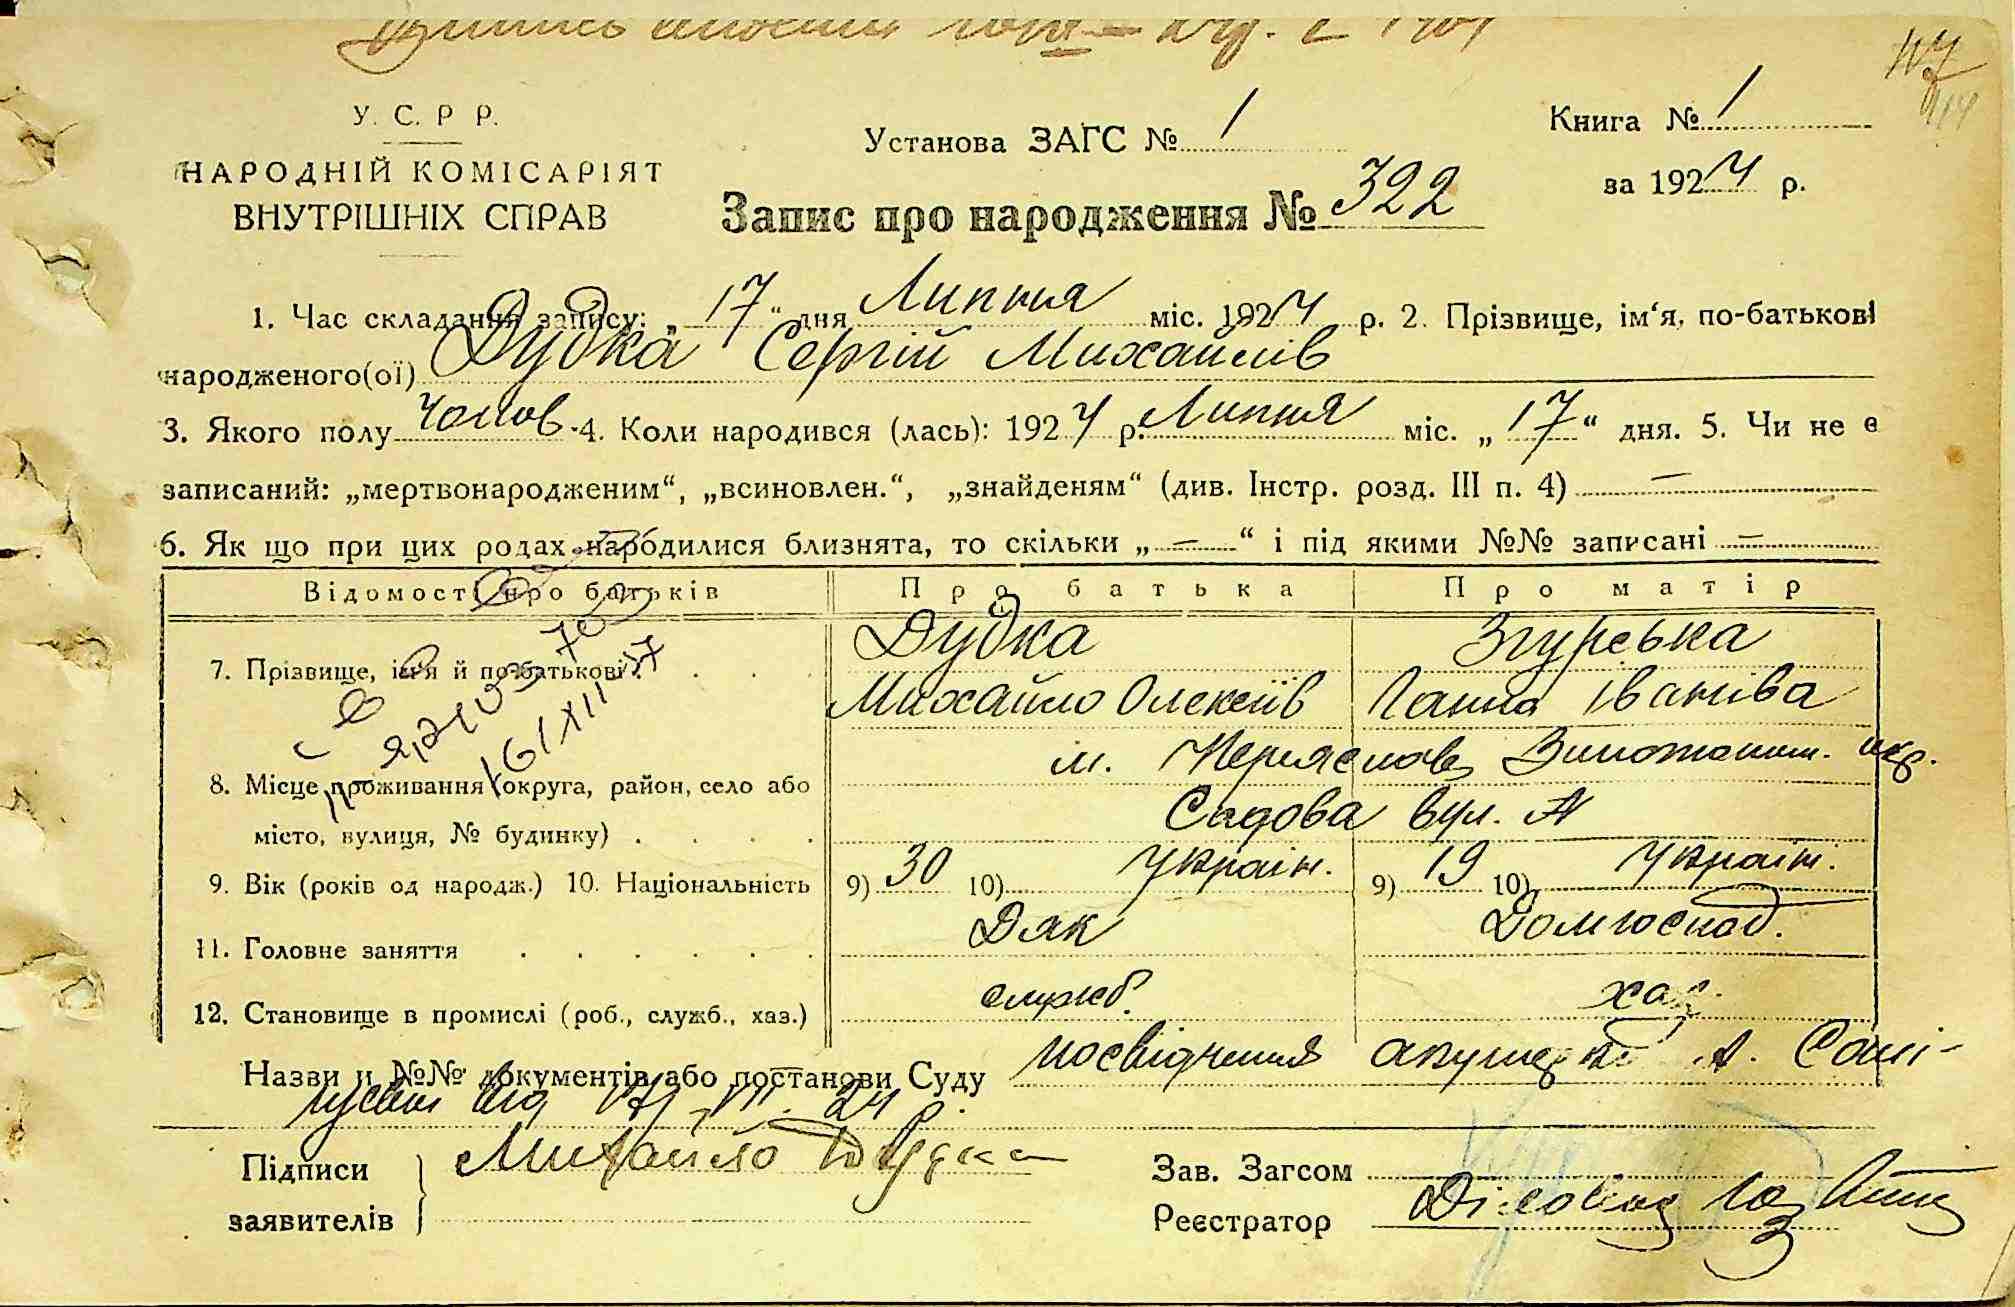 У. С. Р Р.
НАРОДНІЙ КОМІСАРІЯТ
ВНУТРІШНІХ СПРАВ
Установа ЗАГС № 1
Запис про народження № 322
Книга № 1
за 1924 р.
1. Час складання запису: „17“ дня Липня міс. 1924 р. 2. Прізвище, ім‘я, по-батькові
народженого(ої) Дудка Сергій Михайлів
3. Якого полу чолов. 4. Коли народився (лась): 1924 р. Липня міс. „17“ дня. 5. Чи не є
записаний: „мертвонародженим“, „всиновлен.“, „знайденям“ (див. Інстр. розд. III п. 4) —
6. Як що при цих родах народилися близнята, то скільки „—“ і під якими №№ записані —
Відомості про батьків Про батька Про матір
7. Прізвище, ім‘я й по-батькові Дудка Згурська
Михайло Олексіїв Ганна Іванова
8. Місце проживання (округа, район, село або м. Переяслов, Золотоніш. окр.
місто, вулиця, № будинку) Садова вул.
9. Вік (років од народж.) 10. Національність 9) 30 10) Україн. 9) 19 10) Україн.
11. Головне заняття Дяк Домгоспод.
12. Становище в промислі (роб., служб., хаз.) служб. хаз.
Назви и №№ документів або постанови Суду посвідчення акушерки
від 17/VII. 24
Підписи заявителів Михайло Дудка
Зав. Загсом
Реєстратор Діловод